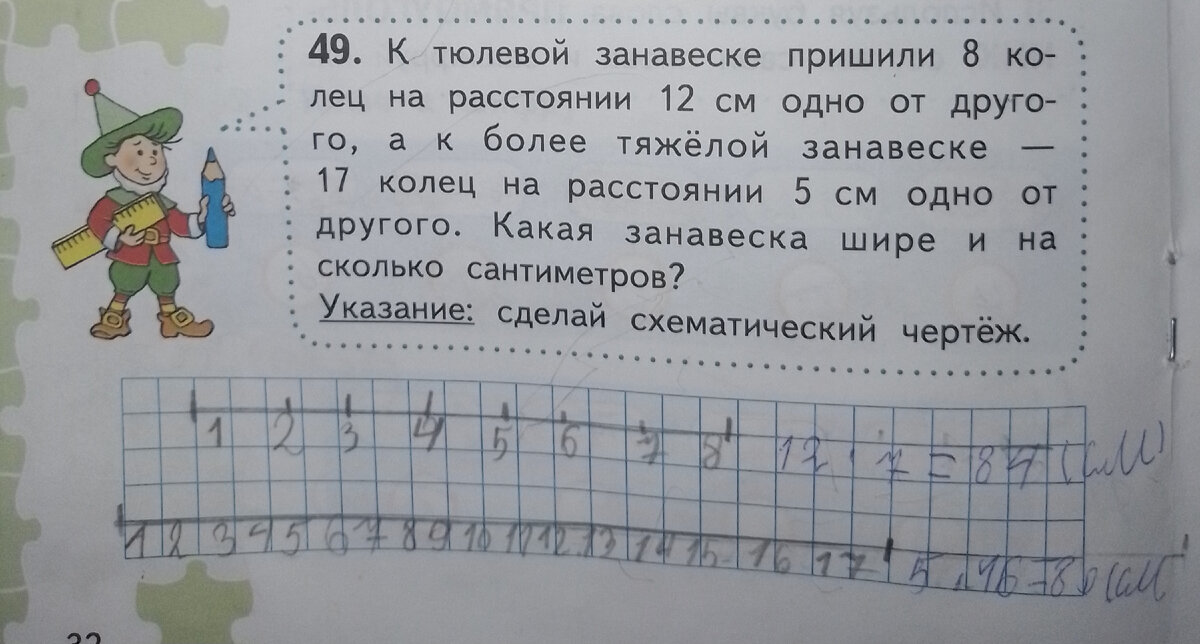 49. К тюлевой занавеске пришили 8 ко-
лец на расстоянии 12 см одно от друго-
го, а к более тяжёлой занавеске —
17 колец на расстоянии 5 см одно от
другого. Какая занавеска шире и на
сколько сантиметров?
Указание: сделай схематический чертёж.
1 2 3 4 5 6 7 8 12 · 7 = 84 (см)
1 2 3 4 5 6 7 8 9 10 11 12 13 14 15 16 17 5 · 16 = 80 (см
32